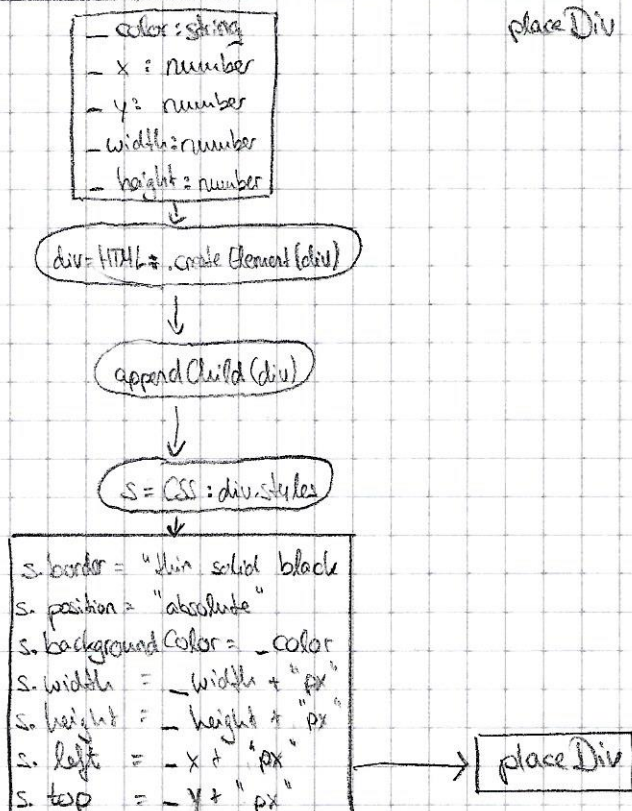 placeDiv
_ color : string
_ x : number
_ y : number
_ width : number
_ height : number
div = HTML = .createElement(div)
appendChild(div)
s = CSS : div.styles
s.border = "thin solid black
s.position = "absolute"
s.backgroundColor = _color
s.width = _width + "px"
s.height = _height + "px"
s.left = _x + "px"
s.top = _y + "px"
placeDiv